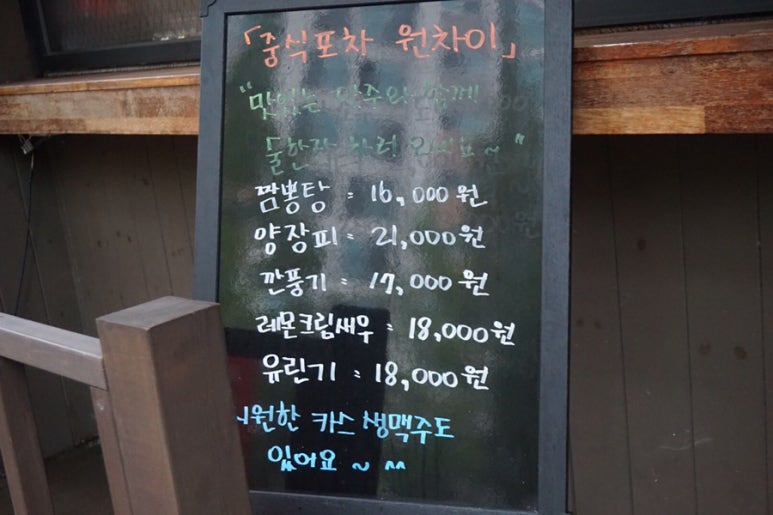 「중식포차 원차이」
"맛있는 안주와 함께
술한잔 하러 오세요~"
짬뽕탕 = 16,000원
양장피 = 21,000원
깐풍기 = 17,000원
레몬크림새우 = 18,000원
유린기 = 18,000원
시원한 카스 생맥주도
있어요~ ^^